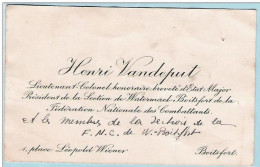 Henri Vandeput
Lieutenant-Colonel honoraire breveté d'Etat Major
Président de la Section de Watermael-Boitsfort de la
Fédération Nationale des Combattants.
et les membres de la de la
F.N.C. de W-Boitsfort
1, place Léopold Wiener Boitsfort.